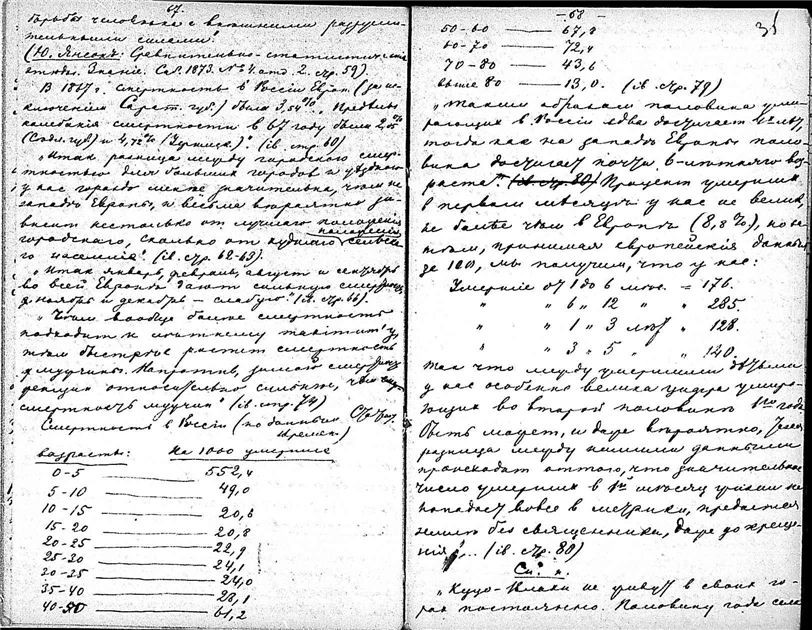 67.
борьбы человека с внѣшними разруши-
тельными силами".
(Ю. Янсонъ: Сравнительно-статистическіе
этюды. Знаніе. Спб. 1873. № 4. отд. 2. стр. 59).
В 1867 г. смертность в Россіи Европ. (за ис-
ключеніем Сарат. губ.) была 3,54%. Предѣлы
колебанія смертности в 67 году были 2,05%
губ.) и 4,72% (ib. стр. 60)
"Итак разница между городскою смер-
тностью для больших городов и уѣздною
у нас гораздо менѣе значительна, чѣм на
западѣ Европы, и весьма вѣроятно за-
висит не столько от лучшаго положенія
городскаго, сколько от худшаго положенія сельска-
го населенія". (ib. стр. 62-63).
"Итак январь, февраль, август и сентябрь
во всей Европѣ дают сильную смертность,
а ноябрь и декабрь — слабую" (ib. стр. 66).
"Чѣм вообще болѣе смертность
подходит к лѣтнему
тѣм быстрѣе растет смертность
мущины. Напротив, зимою смерт.
женщин относительно сильнѣе, чѣм
смертность мущин" (ib. стр. 74)
Смертность в Россіи (по данным
времен.)
возрасты: На 1000 умерших
0-5 —— 552,4
5-10 —— 49,0
10-15 —— 20,6
15-20 —— 20,8
20-25 —— 22,9
25-30 —— 24,1
30-35 —— 24,0
35-40 —— 28,1
40-50 —— 61,2
-68-
50-60 —— 67,8
60-70 —— 72,4
70-80 —— 43,6
выше 80 —— 13,0. (ib. стр. 79)
"Таким образом половина уми-
рающих в Россіи едва достигает
тогда как на западѣ Европы поло-
вина достигает почти 6-лѣтняго воз-
раста". (ib. стр. 80) Процент умерших
в первом мѣсяцѣ у нас не велик,
не болѣе чѣм в Европѣ (8,8%), но за-
тѣм, принимая европейскія данныя
за 100, мы получим, что у нас:
Умершіе от 1 до 6 мѣс. = 176.
" " 6 " 12 " " 285.
" " 1 " 3 лѣт " 128.
" " 3 " 5 " " 140.
так что между умершими дѣтьми
у нас особенно велика цифра умира-
ющих во второй половинѣ 1го года.
Быть может, и даже вѣроятно,
разница между нашими данными
происходит оттого, что значительное
число умерших в 1й мѣсяц жизни не
попадает вовсе в метрики, предается
землѣ без священника, даже до креще-
нія"... (ib. стр. 80)
"Куцо-Влахи не живут в своих го-
рах постоянно. Половину года